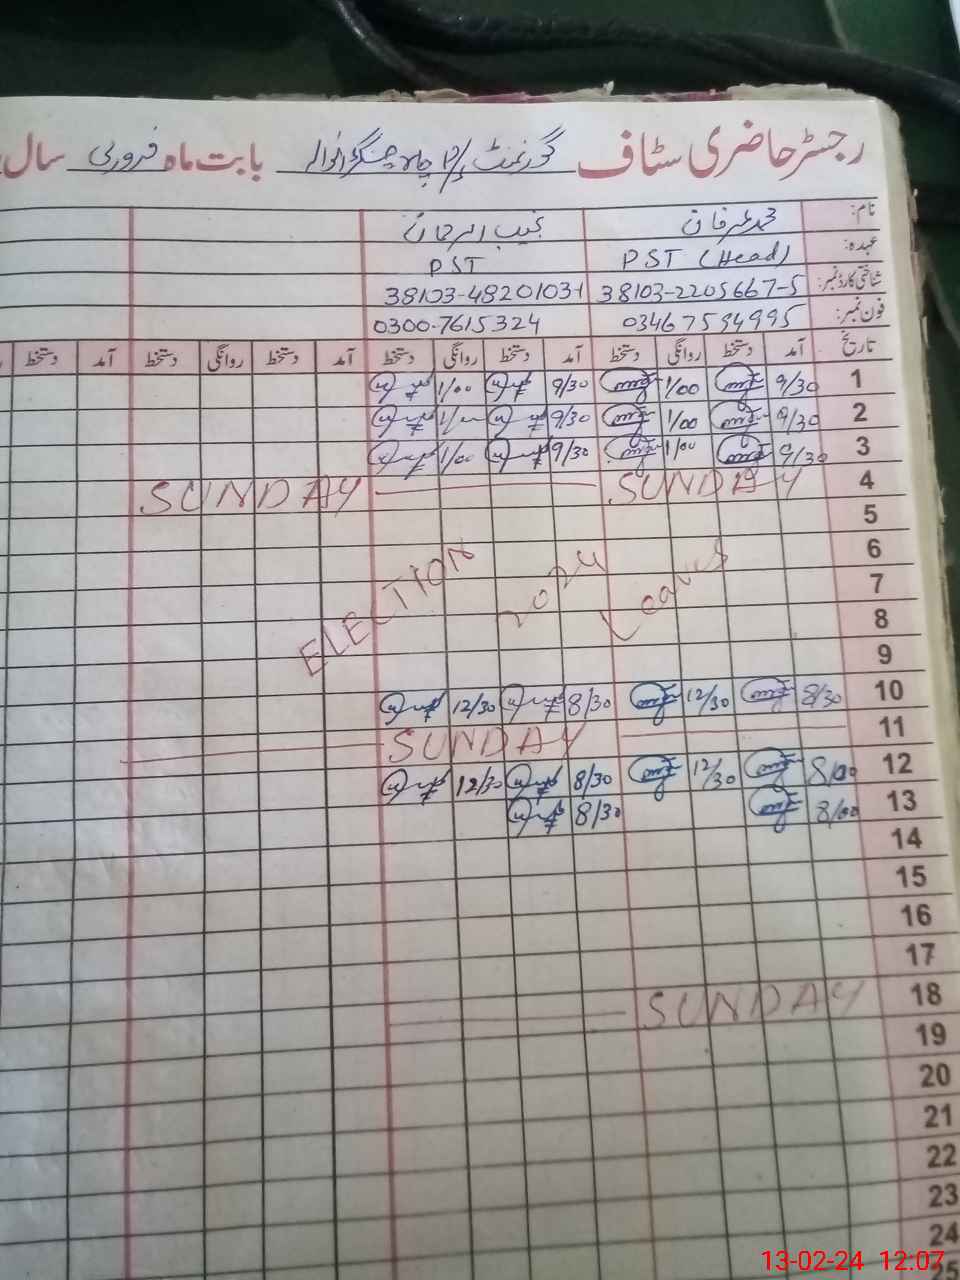 رجسٹر حاضری سٹاف گورنمنٹ P/S چاہ بابت ماہ فروری سال
نام: محمد عرفان نجیب الرحمان
عہدہ: PST (Head) PST
شناختی کارڈ نمبر: 38103-2205667-5 38103-4820103-1
فون نمبر: 03467594995 0300-7615324
تاریخ آمد دستخط روانگی دستخط آمد دستخط روانگی دستخط آمد دستخط روانگی دستخط آمد دستخط
1 9/30 1/00 9/30 1/00
2 9/30 1/00 9/30 1/00
3 9/30 1/00 9/30 1/00
4 SUNDAY SUNDAY
5
6
7
ELECTION 2024 Leaves
8
9
10 8/30 12/30 8/30 12/30
11 SUNDAY
12 8/00 12/30 8/30 12/30
13 8/00 8/30
14
15
16
17
18 SUNDAY
19
20
21
22
23
24
25
13-02-24 12:07